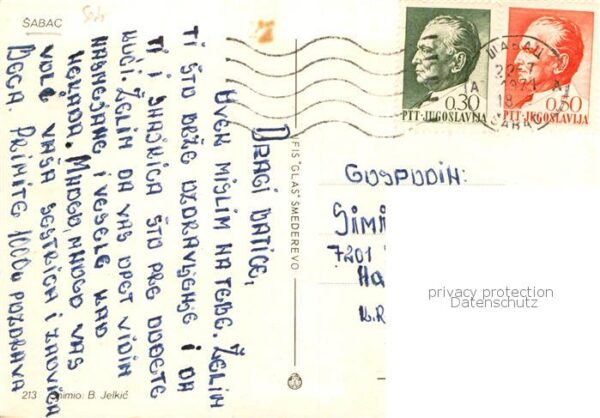 ŠABAC
DRAGI BATICE,
UVEK MISLIM NA TEBE. ŽELIM
TI ŠTO BRŽE OZDRAVLJENJE I DA
TI I SNAJKICA ŠTO PRE DOĐETE
KUĆI. ŽELIM DA VAS OPET VIDIM
NASMEJANE, I VESELE KAO
NEKADA. MNOGO, MNOGO VAS
VOLE VAŠA SESTRICA I
BECA. PRIMITE 1000U POZDRAVA
213 Snimio: B. Jelkić
FIS "GLAS" SMEDEREVO
0.30
PTT-JUGOSLAVIJA
0.50
PTT-JUGOSLAVIJA
ШАБАЦ
1971
18
ŠABAC
GOSPODIN:
SIMI
7201
HA
privacy protection
Datenschutz